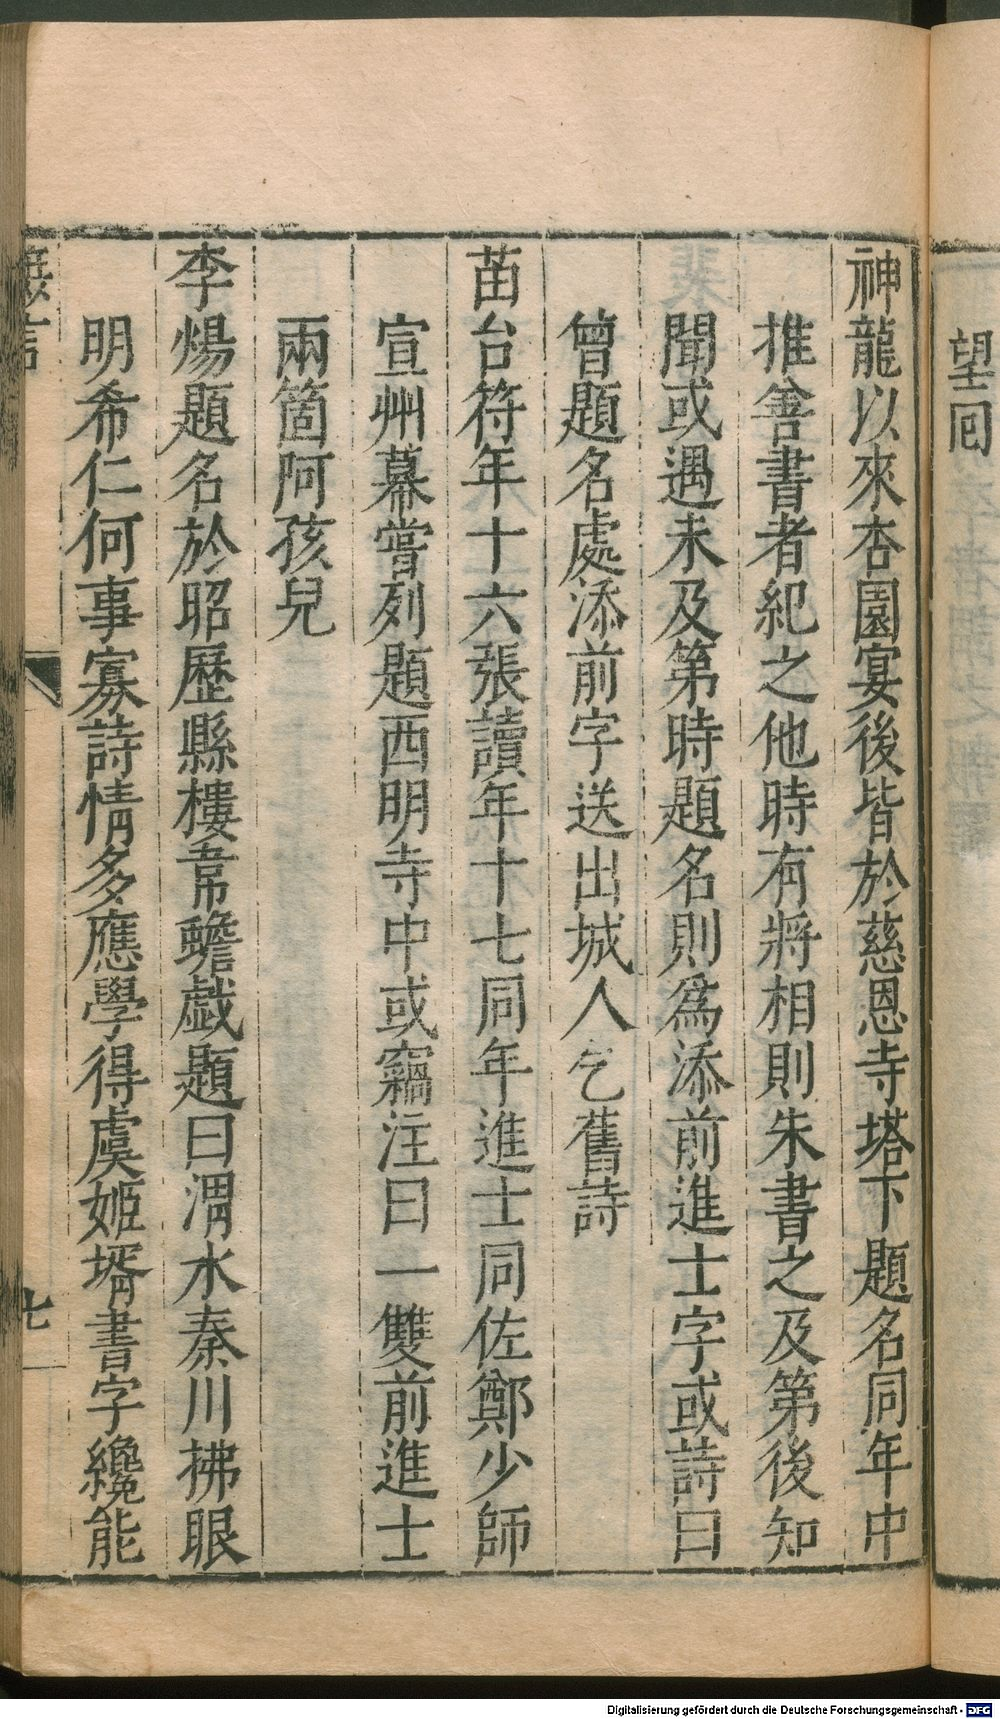 望囘
神龍以來杏園宴後皆於慈恩寺塔下題名同年中
推善書者紀之他時有將相則朱書之及第後知
聞或遇未及第時題名則爲添前進士字或詩曰
曾題名處添前字送出城人乞舊詩
苗台符年十六張讀年十七同年進士同佐鄭少師
宣州幕嘗列題西明寺中或竊注曰一雙前進士
兩箇阿孩兒
李煬題名於昭歷縣樓韋蟾戱題曰渭水秦川拂眼
明希仁何事寡詩情多應學得虞姬壻書字纔能
言
七
Digitalisierung gefördert durch die Deutsche Forschungsgemeinschaft - DFG